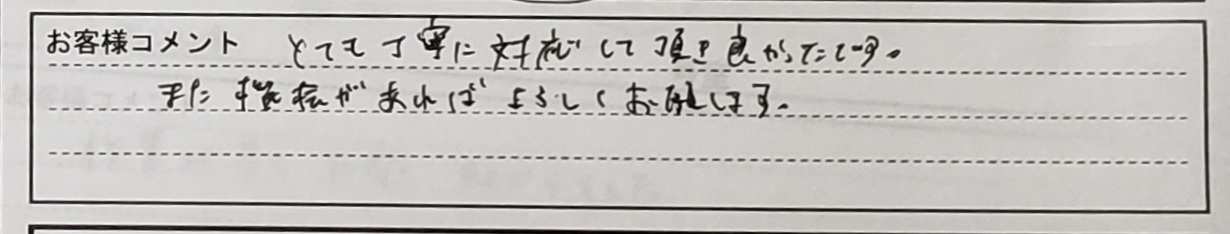 お客様コメント とても丁寧に対応して頂き良かったです。
また機会があればよろしくお願します。